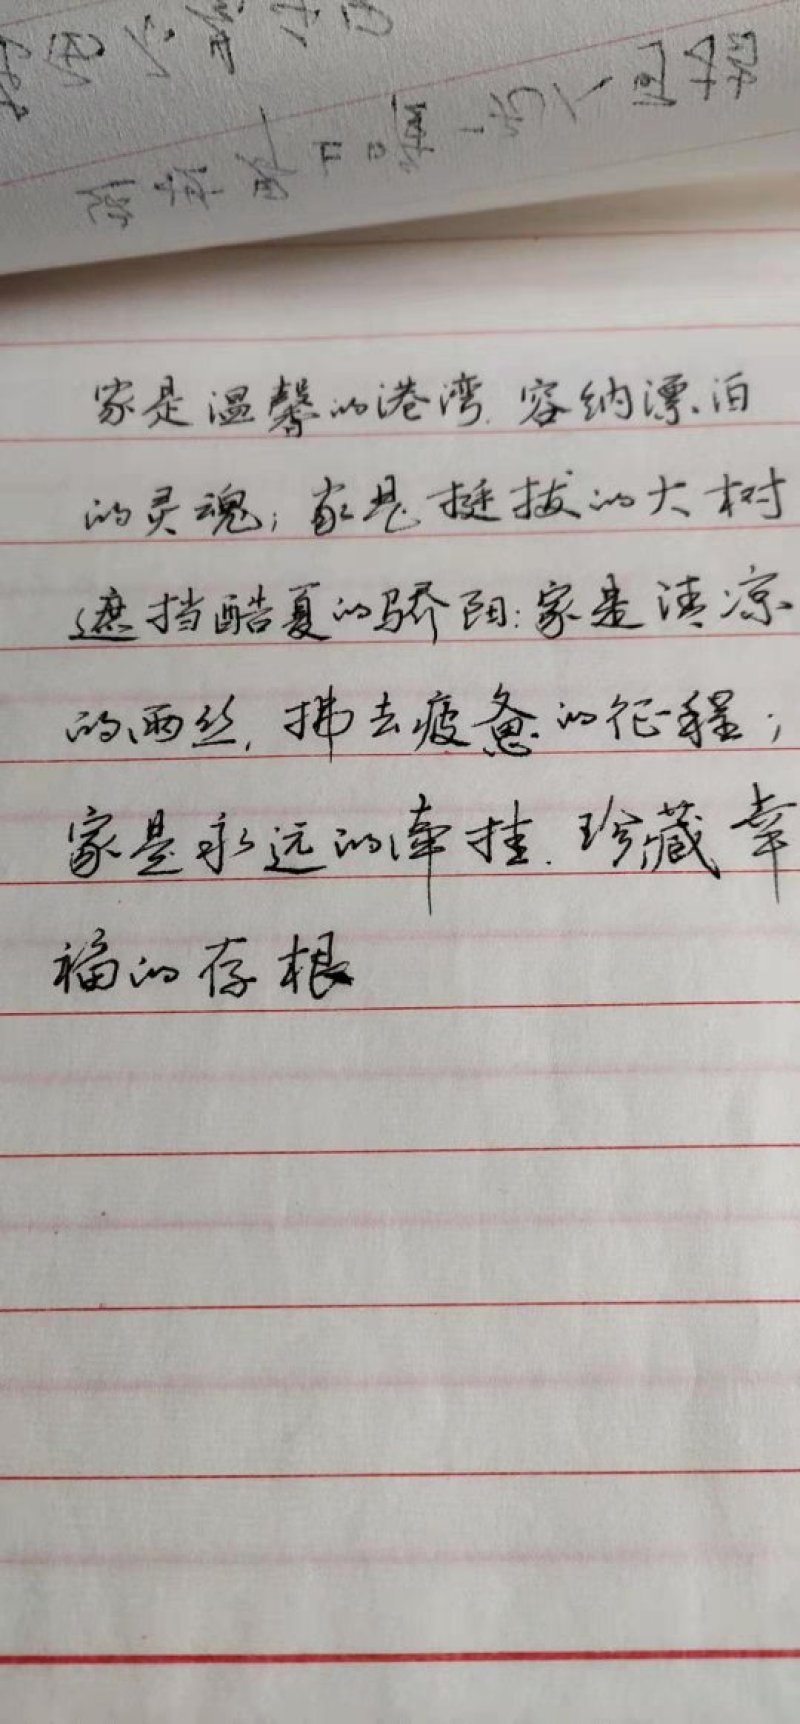 家是温馨的港湾,容纳漂泊
的灵魂;家是挺拔的大树
遮挡酷夏的骄阳;家是清凉
的雨丝,拂去疲惫的征程;
家是永远的牵挂,珍藏幸
福的存根